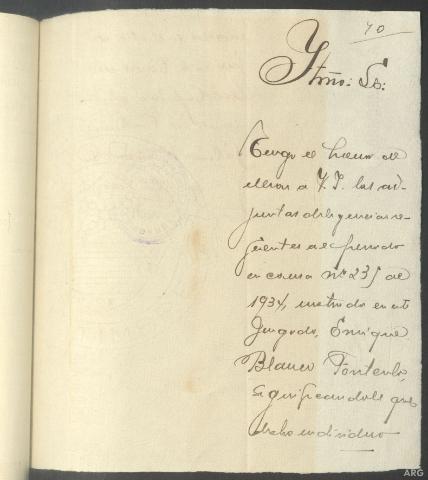 70
Iltmo: Sr:
Tengo el honor de
elevar a V.I. las ad-
juntas diligencias re-
ferentes al penado
en causa nº 235 de
1934, instruida en este
Juzgado, Enrique
Blanco Fontenla,
significandole que
dicho individuo
ARG